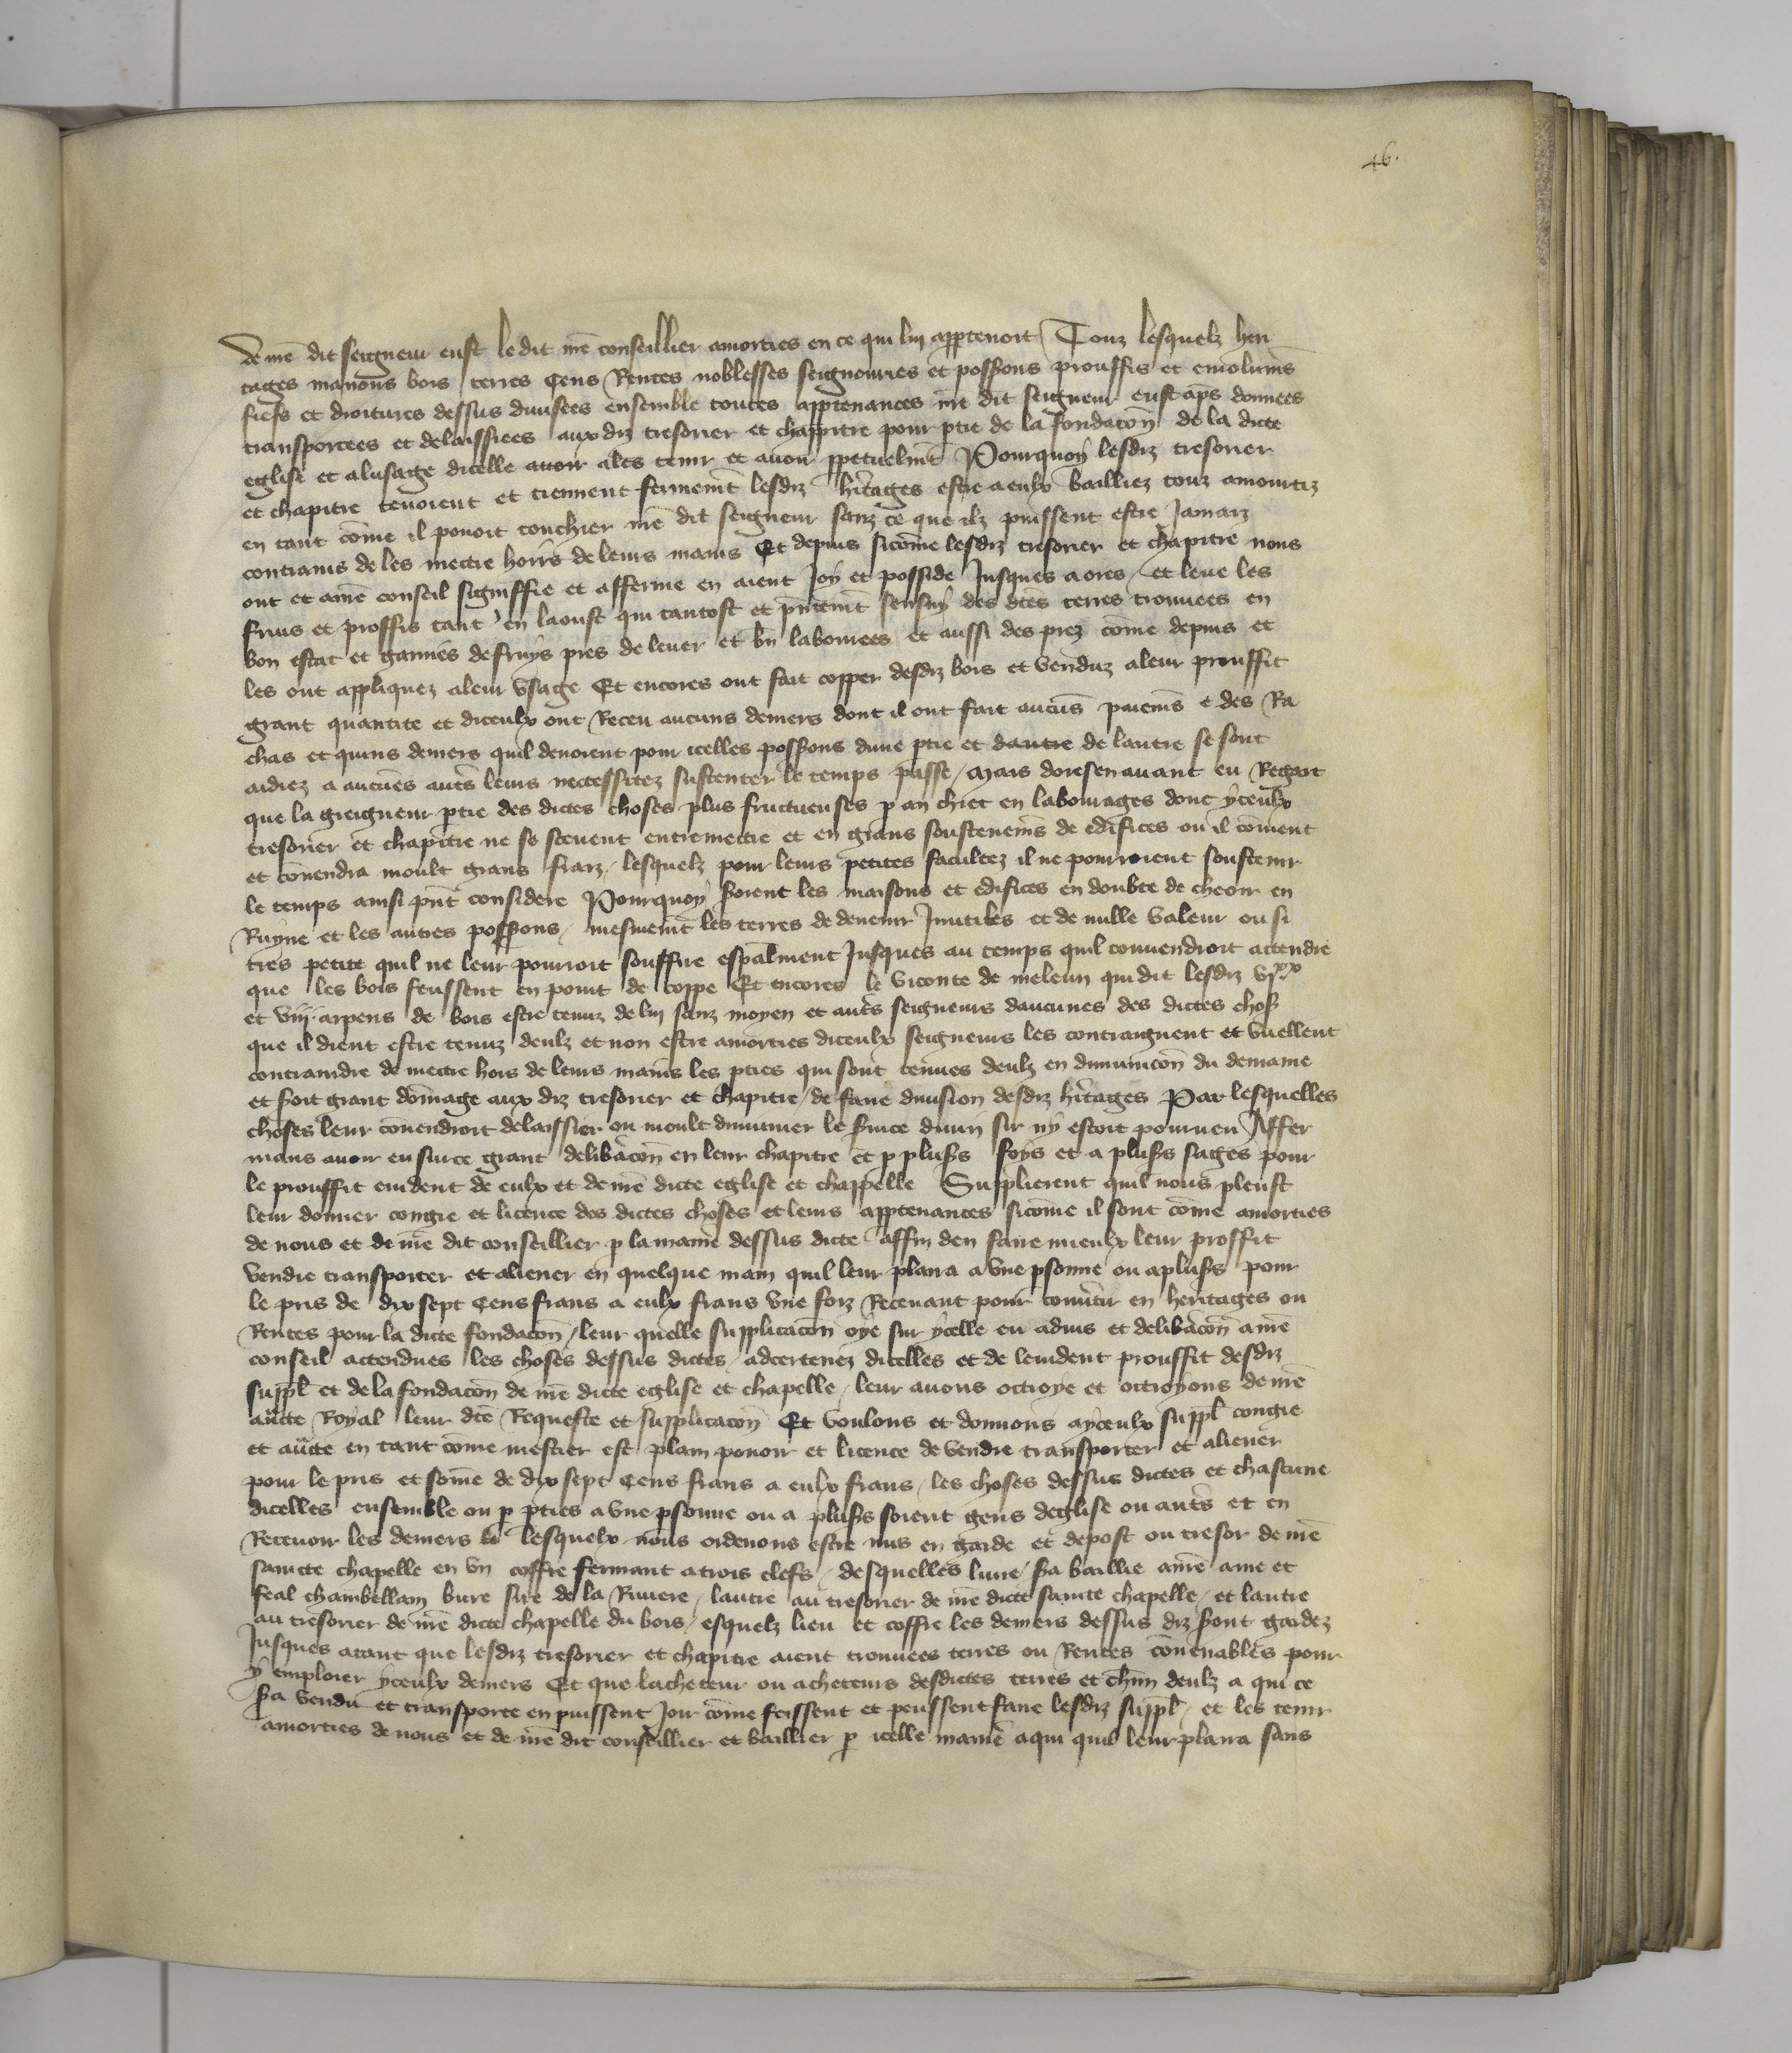 46.
de nre dit seigneur eust le dit nre conseillier amorties en ce qui lui appartenoit / Touz lesquelz heri
tages manoirs bois / terres Cens Rentes noblesses seignouries et possessions prouffis et emolumens
fiefs et droitures dessus divisees ensemble toutes appartenances nre dit seigneur eust apres donnees
transportees et delaissiees aux diz tresorier et chappitre pour partie de la fondacion de la dicte
eglise et a lusaige dicelle avoir a les tenir et avoir perpetuelment Pourquoy lesdiz tresorier
et chapitre tenoient et tiennent fermement lesdiz heritages estre a eulx bailliez touz amortiz
en tant comme il povoit touchier nre dit seigneur sanz ce que ilz puissent estre Jamaiz
contrains de les mectre horrs de leurs mains Et depuis sicomme lesdiz tresorier et chapitre nous
ont et a nre conseil signiffie et afferme en aient Joy et posside Jusques a ores / et leve les
fruis et proffis tant en laoust qui tantost et prestement sensuy des dictes terres trouvees en
bon estat et garnies de fruys pres de lever et bien labourees et aussi des prez comme depuis et
les ont appliquez a leur usage Et encores ont fait copper desdiz bois et venduz a leur prouffit
grant quantite et diceulx ont Receu aucuns deniers dont il ont fait aucuns paiemens et des Ra
chas et quins deniers quil devoient pour icelles possessions dune partie et dautre de lautre se sont
aidiez a aucunes autres leurs neccessitez sustenter le temps passe / Mais doresenavant eu Regart
que la greigneur partie des dictes choses plus fructueuses par an chiet en labourages dont yceulx
tresorier et chapitre ne se scevent entremectre et en grans soustenemens de edifices ou il convient
et convendra moult grans fraiz / lesquelz pour leurs petites facultez il ne pourroient soustenir
le temps ainsi present considere Pourquoy seroient les maisons et edifices en doubte de cheoir en
Ruyne et les autres possessions / mesmement les terres de devenir Inutiles et de nulle valeur ou si
tres petite quil ne leur pourroit souffire especialment Jusques au temps quil convendroit actendre
que les bois feussent en point de coppe Et encores le viconte de meleun qui dit lesdiz vi xx
et viii arpens de bois estre tenuz de lui sanz moyen et autres seigneurs daucunes des dictes choses
que il dient estre tenuz deulz et non estre amorties diceulx seigneurs les contraignent et vuellent
contraindre de mectre hors de leurs mains les parties qui sont tenues deulz en diminucion du demaine
et soit grant dommage aux diz tresorier et chapitre / de faire division desdiz heritages Par lesquelles
choses leur convendroit delaissier ou moult diminuer le service divin sir ny estoit pourveu Affer
mans avoir eu sur ce grant deliberacion en leur chapitre et par pluseurs foys et a pluseurs sages pour
le prouffit evident de eulx et de nre dicte eglise et chappelle Supplierent quil nous pleust
leur donner congie et licence des dictes choses et leurs appartenances sicomme il sont comme amorties
de nous et de nre dit conseillier par la maniere dessus dicte affin den faire mieulx leur proffit
vendre transporter et aliener en quelque main quil leur plaira a une personne ou a pluseurs pour
le pris de dix sept Cens frans a eulx frans une foiz Recevant pour convertir en heritages ou
Rentes pour la dicte fondacion / leur quelle supplicacion oye sur ycelle eu advis et deliberacion a nre
conseil actendues les choses dessus dictes / adcertenez dicelles et de levident prouffit desdiz
suppl et de la fondacion de nre dicte eglise et chapelle / leur avons octroye et octroyons de nre
aucte Royal leur dicte Requeste et supplicacion Et voulons et donnons a yceulx suppl congie
et aucte en tant comme mestier est plain povoir et licence de vendre transporter et aliener
pour le pris et somme de dix sept Cens frans a eulx frans / les choses dessus dictes et chascune
dicelles ensemble ou par parties a une personne ou a pluseurs soient gens deglise ou autres et en
Recevoir les deniers lesquelx nous ordenons estre mis en garde et depost ou tresor de nre
saincte chapelle en un coffre fermant a trois clefs / desquelles lune sera baillie a nre ame et
feal chambellam bure sire de la Riviere / lautre au tresorier de nre dicte saincte chapelle / et lautre
au tresorier de nre dicte chapelle du bois / esquelz lieu et coffre les deniers dessus diz seront gardez
Jusques a tant que lesdiz tresorier et chapitre aient trouvees terres ou Rentes convenables pour
y emploier yceulx deniers Et que lacheteur ou acheteurs desdictes terres et chascun deulz a qui ce
sera vendu et transporte en puissent Joir comme feissent et peussent faire lesdiz suppl / et les tenir
amorties de nous et de nre dit conseillier et baillier par icelle maniere a qui quil leur plaira sans